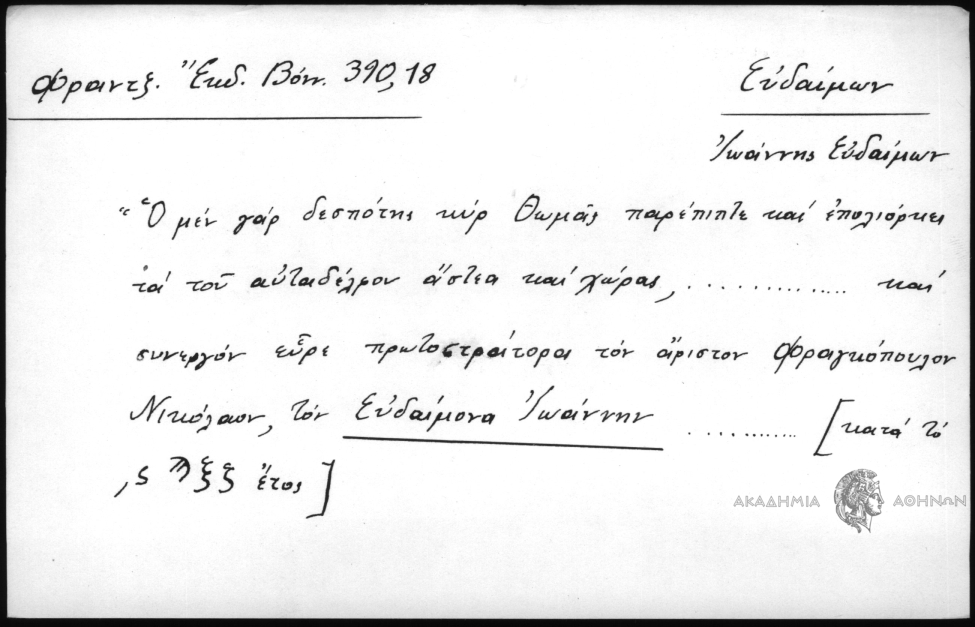 Φραντζ. Ἔκδ. Βόνν. 390,18
Εὐδαίμων
Ἰωάννης Εὐδαίμων
"Ὁ μέν γάρ δεσπότης κύρ Θωμᾶς παρέπιπτε καί ἐπολιόρκει
τά τοῦ αὐταδέλφου ἄστεα καί χώρας, .............. καί
συνεργόν εὗρε πρωτοστράτορα τόν ἄριστον Φραγκόπουλον
Νικόλαον, τόν Εὐδαίμονα Ἰωάννην ........... [κατά τό
ἔτος]
ΑΚΑΔΗΜΙΑ ΑΘΗΝΩΝ